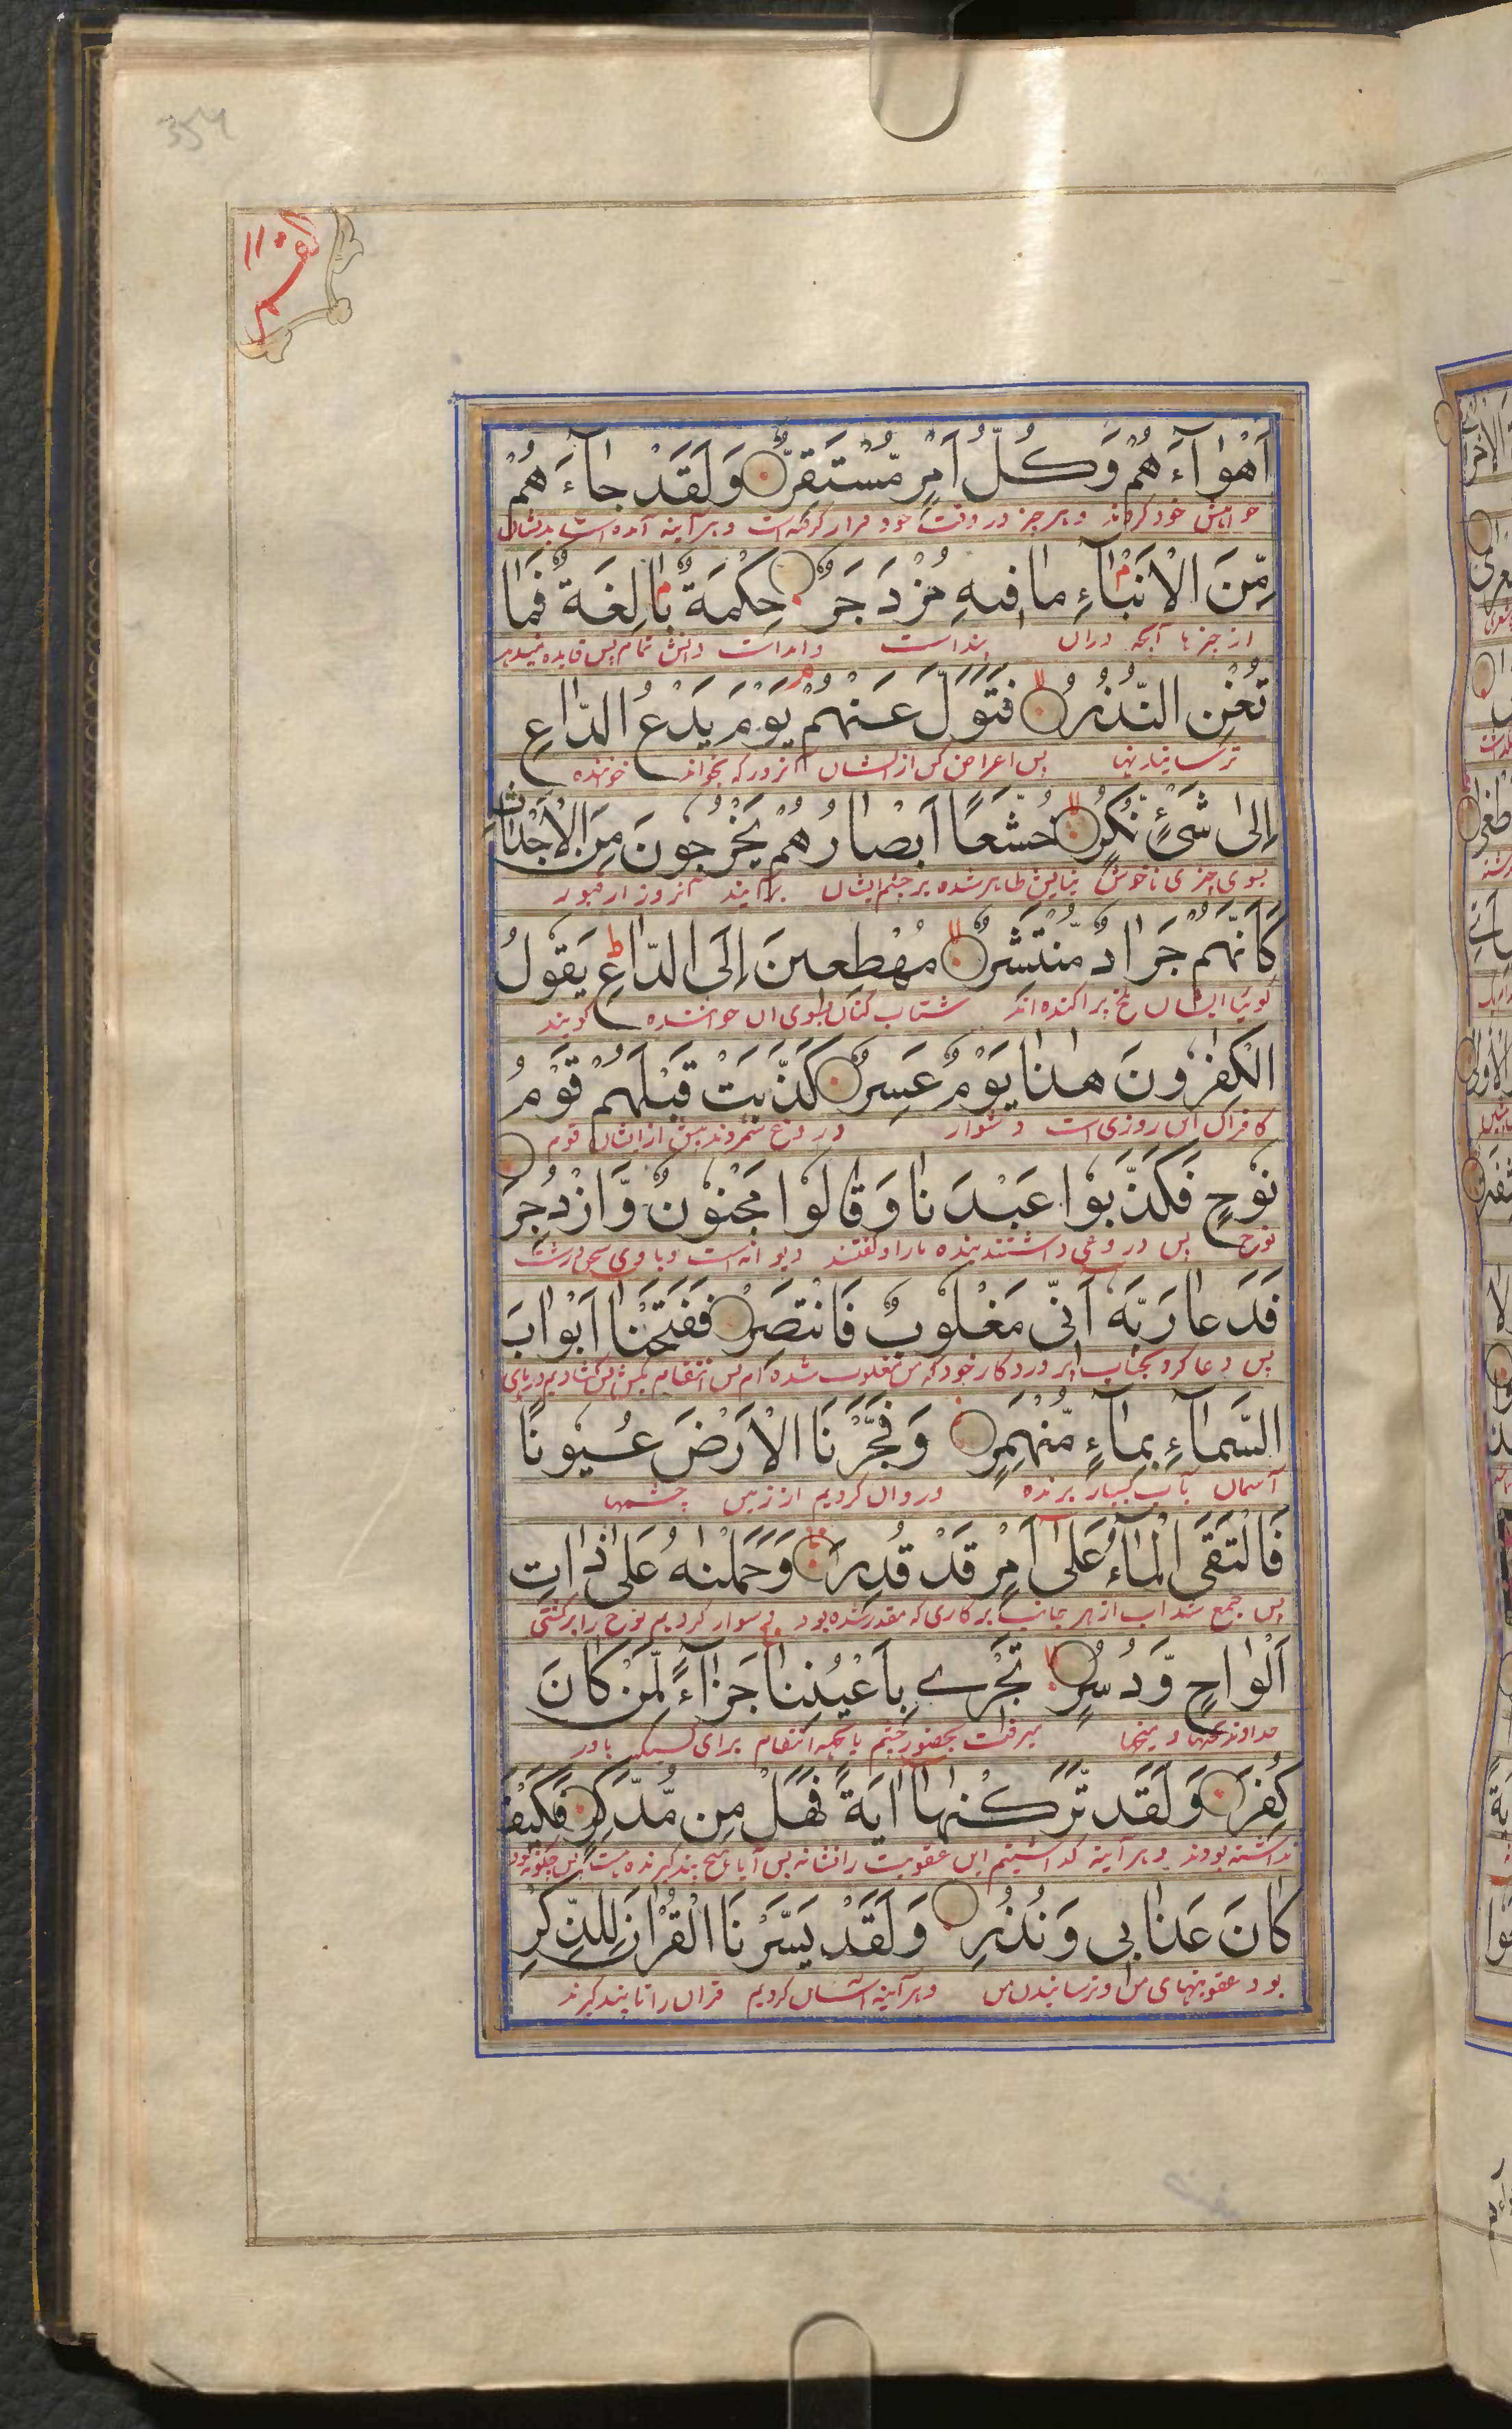 القمر
اَهْوَآءَهُمْ وَكُلُّ اَمْرٍ مُّسْتَقِرٌّ وَلَقَدْ جَآءَهُمْ
خود کرده‌اند و هر چیز در وقت خود قرار گرفته است و هر آینه آمده است بدیشان
مِّنَ الْاَنْبَآءِ مَا فِيهِ مُزْدَجَرٌ حِكْمَةٌ بَالِغَةٌ فَمَا
از چیزها آنچه دران پند است دانش تمام پس فایده نمیدهد
تُغْنِ النُّذُرُ فَتَوَلَّ عَنْهُمْ يَوْمَ يَدْعُ الدَّاعِ
پس اعراض کن از ایشان که بخواند خواننده
اِلٰى شَيْءٍ نُّكُرٍ خُشَّعًا اَبْصَارُهُمْ يَخْرُجُونَ مِنَ الْاَجْدَاثِ
بسوی چیزی ناخوش ظاهر شده بر چشم ایشان برآیند آنروز از قبور
كَاَنَّهُمْ جَرَادٌ مُّنْتَشِرٌ مُهْطِعِينَ اِلَى الدَّاعِ يَقُولُ
گوئیا ایشان ملخ پراکنده‌اند شتاب کنان بسوی آن خواننده گویند
الْكٰفِرُونَ هٰذَا يَوْمٌ عَسِرٌ كَذَّبَتْ قَبْلَهُمْ قَوْمُ
کافران این روزی است دشوار دروغ شمردند پیش از ایشان قوم
نُوحٍ فَكَذَّبُوا عَبْدَنَا وَقَالُوا مَجْنُونٌ وَّازْدُجِرَ
نوح پس دروغی داشتند بنده ما را و گفتند دیوانه است و با وی سخن درشت
فَدَعَا رَبَّهٗ اَنِّي مَغْلُوبٌ فَانْتَصِرْ فَفَتَحْنَا اَبْوَابَ
پس دعا کرد بجناب پروردگار خود که من مغلوب شده‌ام پس انتقام بکش پس گشادیم درهای
السَّمَآءِ بِمَآءٍ مُّنْهَمِرٍ وَفَجَّرْنَا الْاَرْضَ عُيُونًا
آسمان بآب بسیار ریزنده و روان کردیم از زمین چشمها
فَالْتَقَى الْمَآءُ عَلٰى اَمْرٍ قَدْ قُدِرَ وَحَمَلْنٰهُ عَلٰى ذَاتِ
پس جمع شد آب از هر جانب بر کاری که مقدر شده بود و سوار کردیم نوح را بر کشتی
اَلْوَاحٍ وَّدُسُرٍ تَجْرِي بِاَعْيُنِنَا جَزَآءً لِّمَنْ كَانَ
خداوند تختها و میخها میرفت بحضور چشم ما بجهة انتقام برای کسیکه باور
كُفِرَ وَلَقَدْ تَّرَكْنٰهَا اٰيَةً فَهَلْ مِنْ مُّدَّكِرٍ فَكَيْفَ
نداشته بودند و هر آینه گذاشتیم این عقوبت را نشانه پس آیا هیچ پند گیرنده هست پس چگونه
كَانَ عَذَابِي وَنُذُرِ وَلَقَدْ يَسَّرْنَا الْقُرْاٰنَ لِلذِّكْرِ
بود عقوبتهای من و ترسانیدن من و هر آینه آسان کردیم قرآن را تا پند گیرند